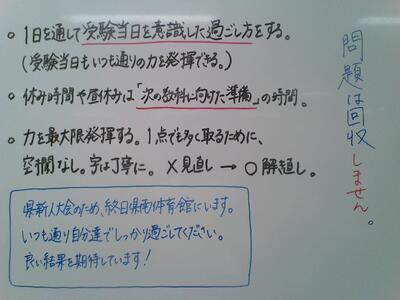 ・1日を通して受験当日を意識した過ごし方をする。
(受験当日もいつも通りの力を発揮できる。)
・休み時間や昼休みは「次の教科に向けた準備」の時間。
・力を最大限発揮する。1点でも多く取るために、
空欄なし。字は丁寧に。×見直し → ○解き直し。
県新人大会のため、終日県南体育館にいます。
いつも通り自分達でしっかり過ごしてください。
良い結果を期待しています!
問題は回収しません。